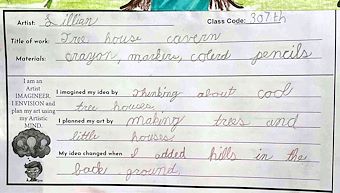 Artist: Lillian Class Code: 307th
Title of work: Tree house cavern
Materials: crayon, markers, colerd pencils
I am an
Artist
IMAGINEER.
I ENVISION and
plan my art using
my Artistic
MIND.
I imagined my idea by thinking about cool
tree houses
I planned my art by making trees and
little houses
My idea changed when I added hills in the
back ground